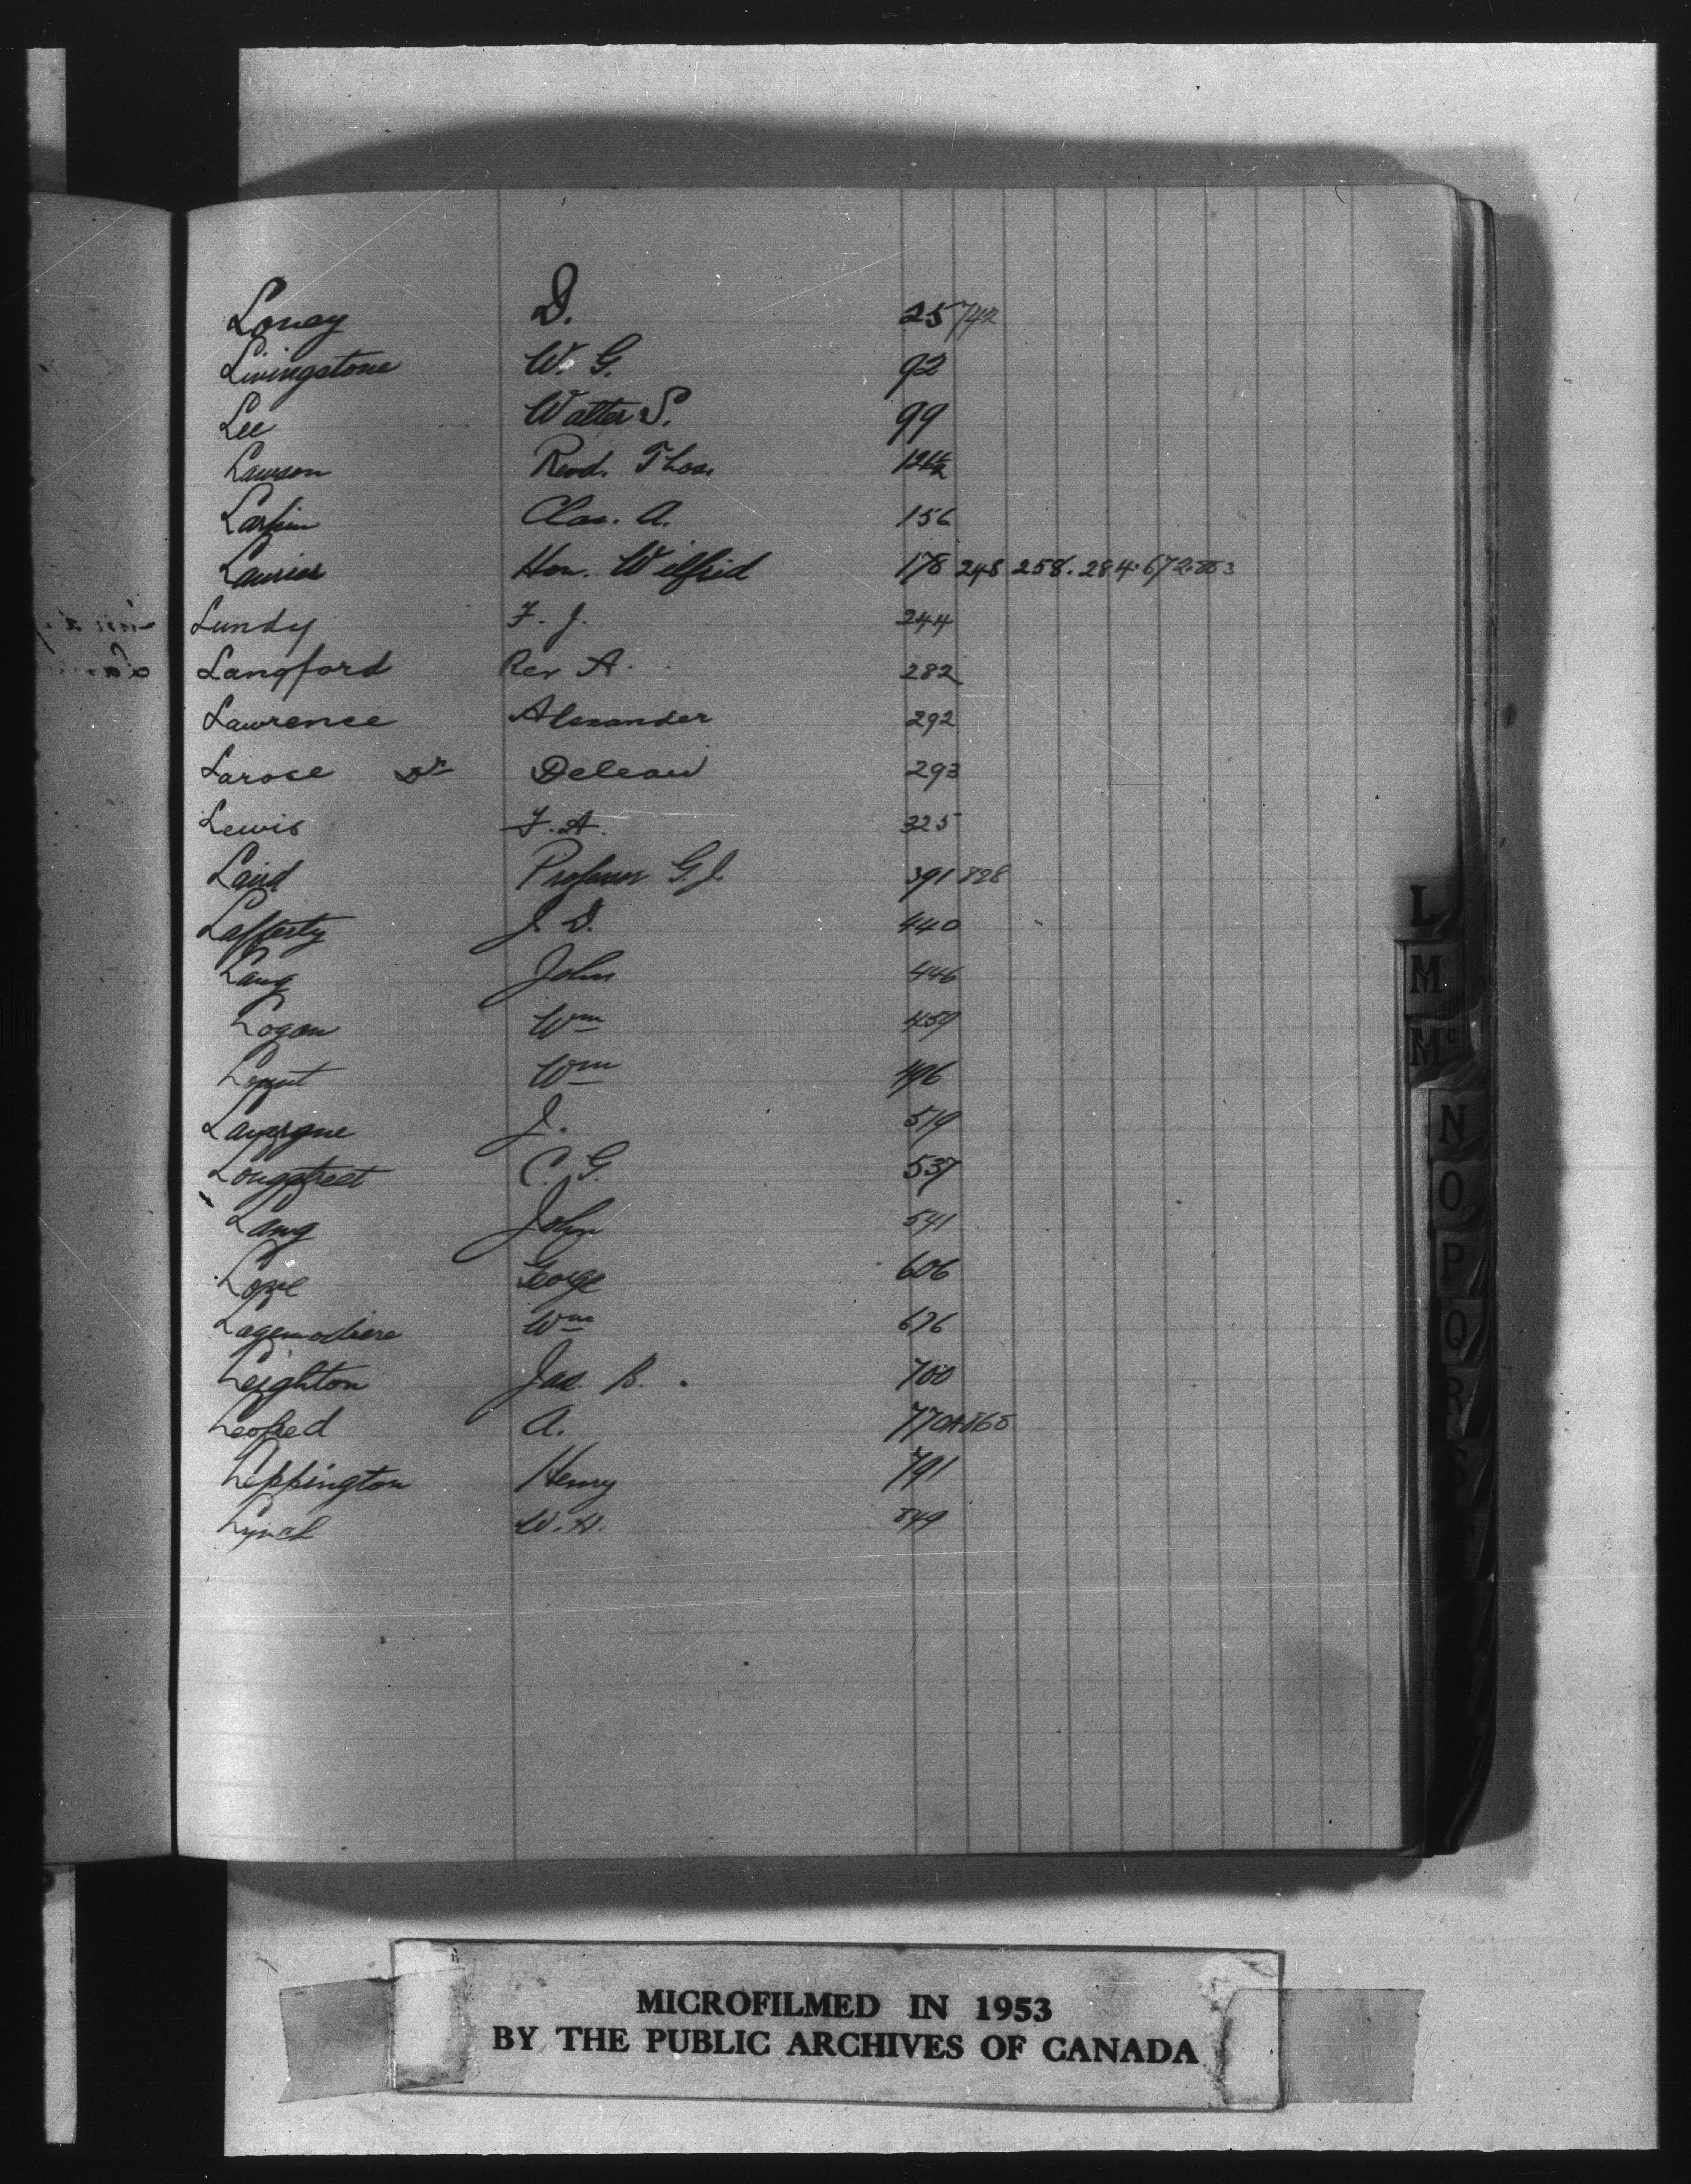 Loney D. 25 742
Livingstone W. G. 92
Lee Walter S. 99
Lawson Revd. Thos.
Larkin Chas. A. 156
Laurier Hon. Wilfrid 178 248 258. 284. 672. 853
Lundy F. J. 244
Langford Rev A. 282
Lawrence Alexander 292
Larose Dr Deleau 293
Lewis F. A. 325
Laird Professor G. J. 391 828
Lafferty J. D. 440
Lang John 446
Logan Wm 459
Wm 496
Lavergne J. 519
Longstreet C. G. 537
Lang John 541
Love George 606
Lagemodiere Wm 676
Leighton Jas. B. 700
Leofred A. 770A 868
Leppington Henry 791
Lynch W. H. 849
L
M
Mc
N
O
P
Q
R
S
MICROFILMED IN 1953
BY THE PUBLIC ARCHIVES OF CANADA